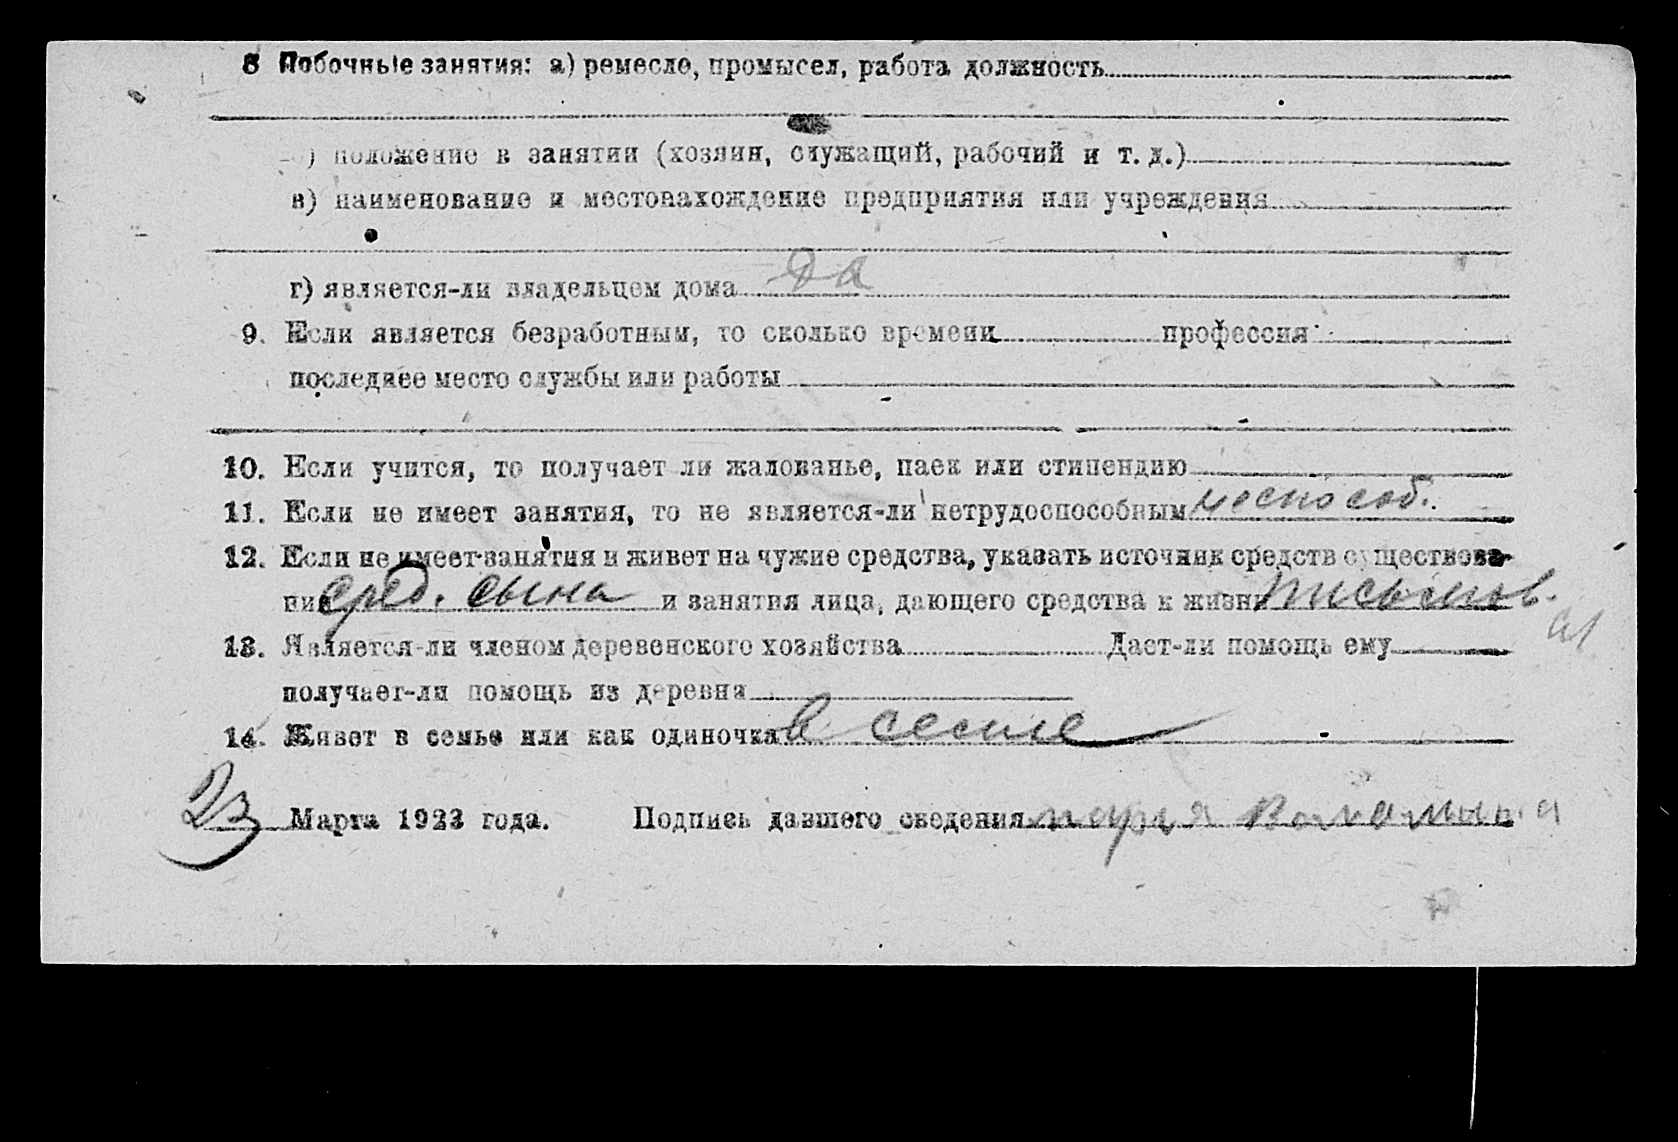 8 Побочные занятия: а) ремесло, промысел, работа должность
б) положение в занятии (хозяин, служащий, рабочий и т. д.)
в) наименование и местонахождение предприятия или учреждения
г) является-ли владельцем дома да
9. Если является безработным, то сколько времени профессия
последнее место службы или работы
10. Если учится, то получает ли жалованье, паек или стипендию
11. Если не имеет занятия, то не является-ли нетрудоспособным неспособ.
12. Если не имеет занятия и живет на чужие средства, указать источник средств существова-
ния сред. сына и занятия лица, дающего средства к жизни письмов.
13. Является-ли членом деревенского хозяйства Дает-ли помощь ему
получает-ли помощь из деревни
14. Живет в семье или как одиночка в семье
23 Марта 1923 года. Подпись давшего сведения Марья